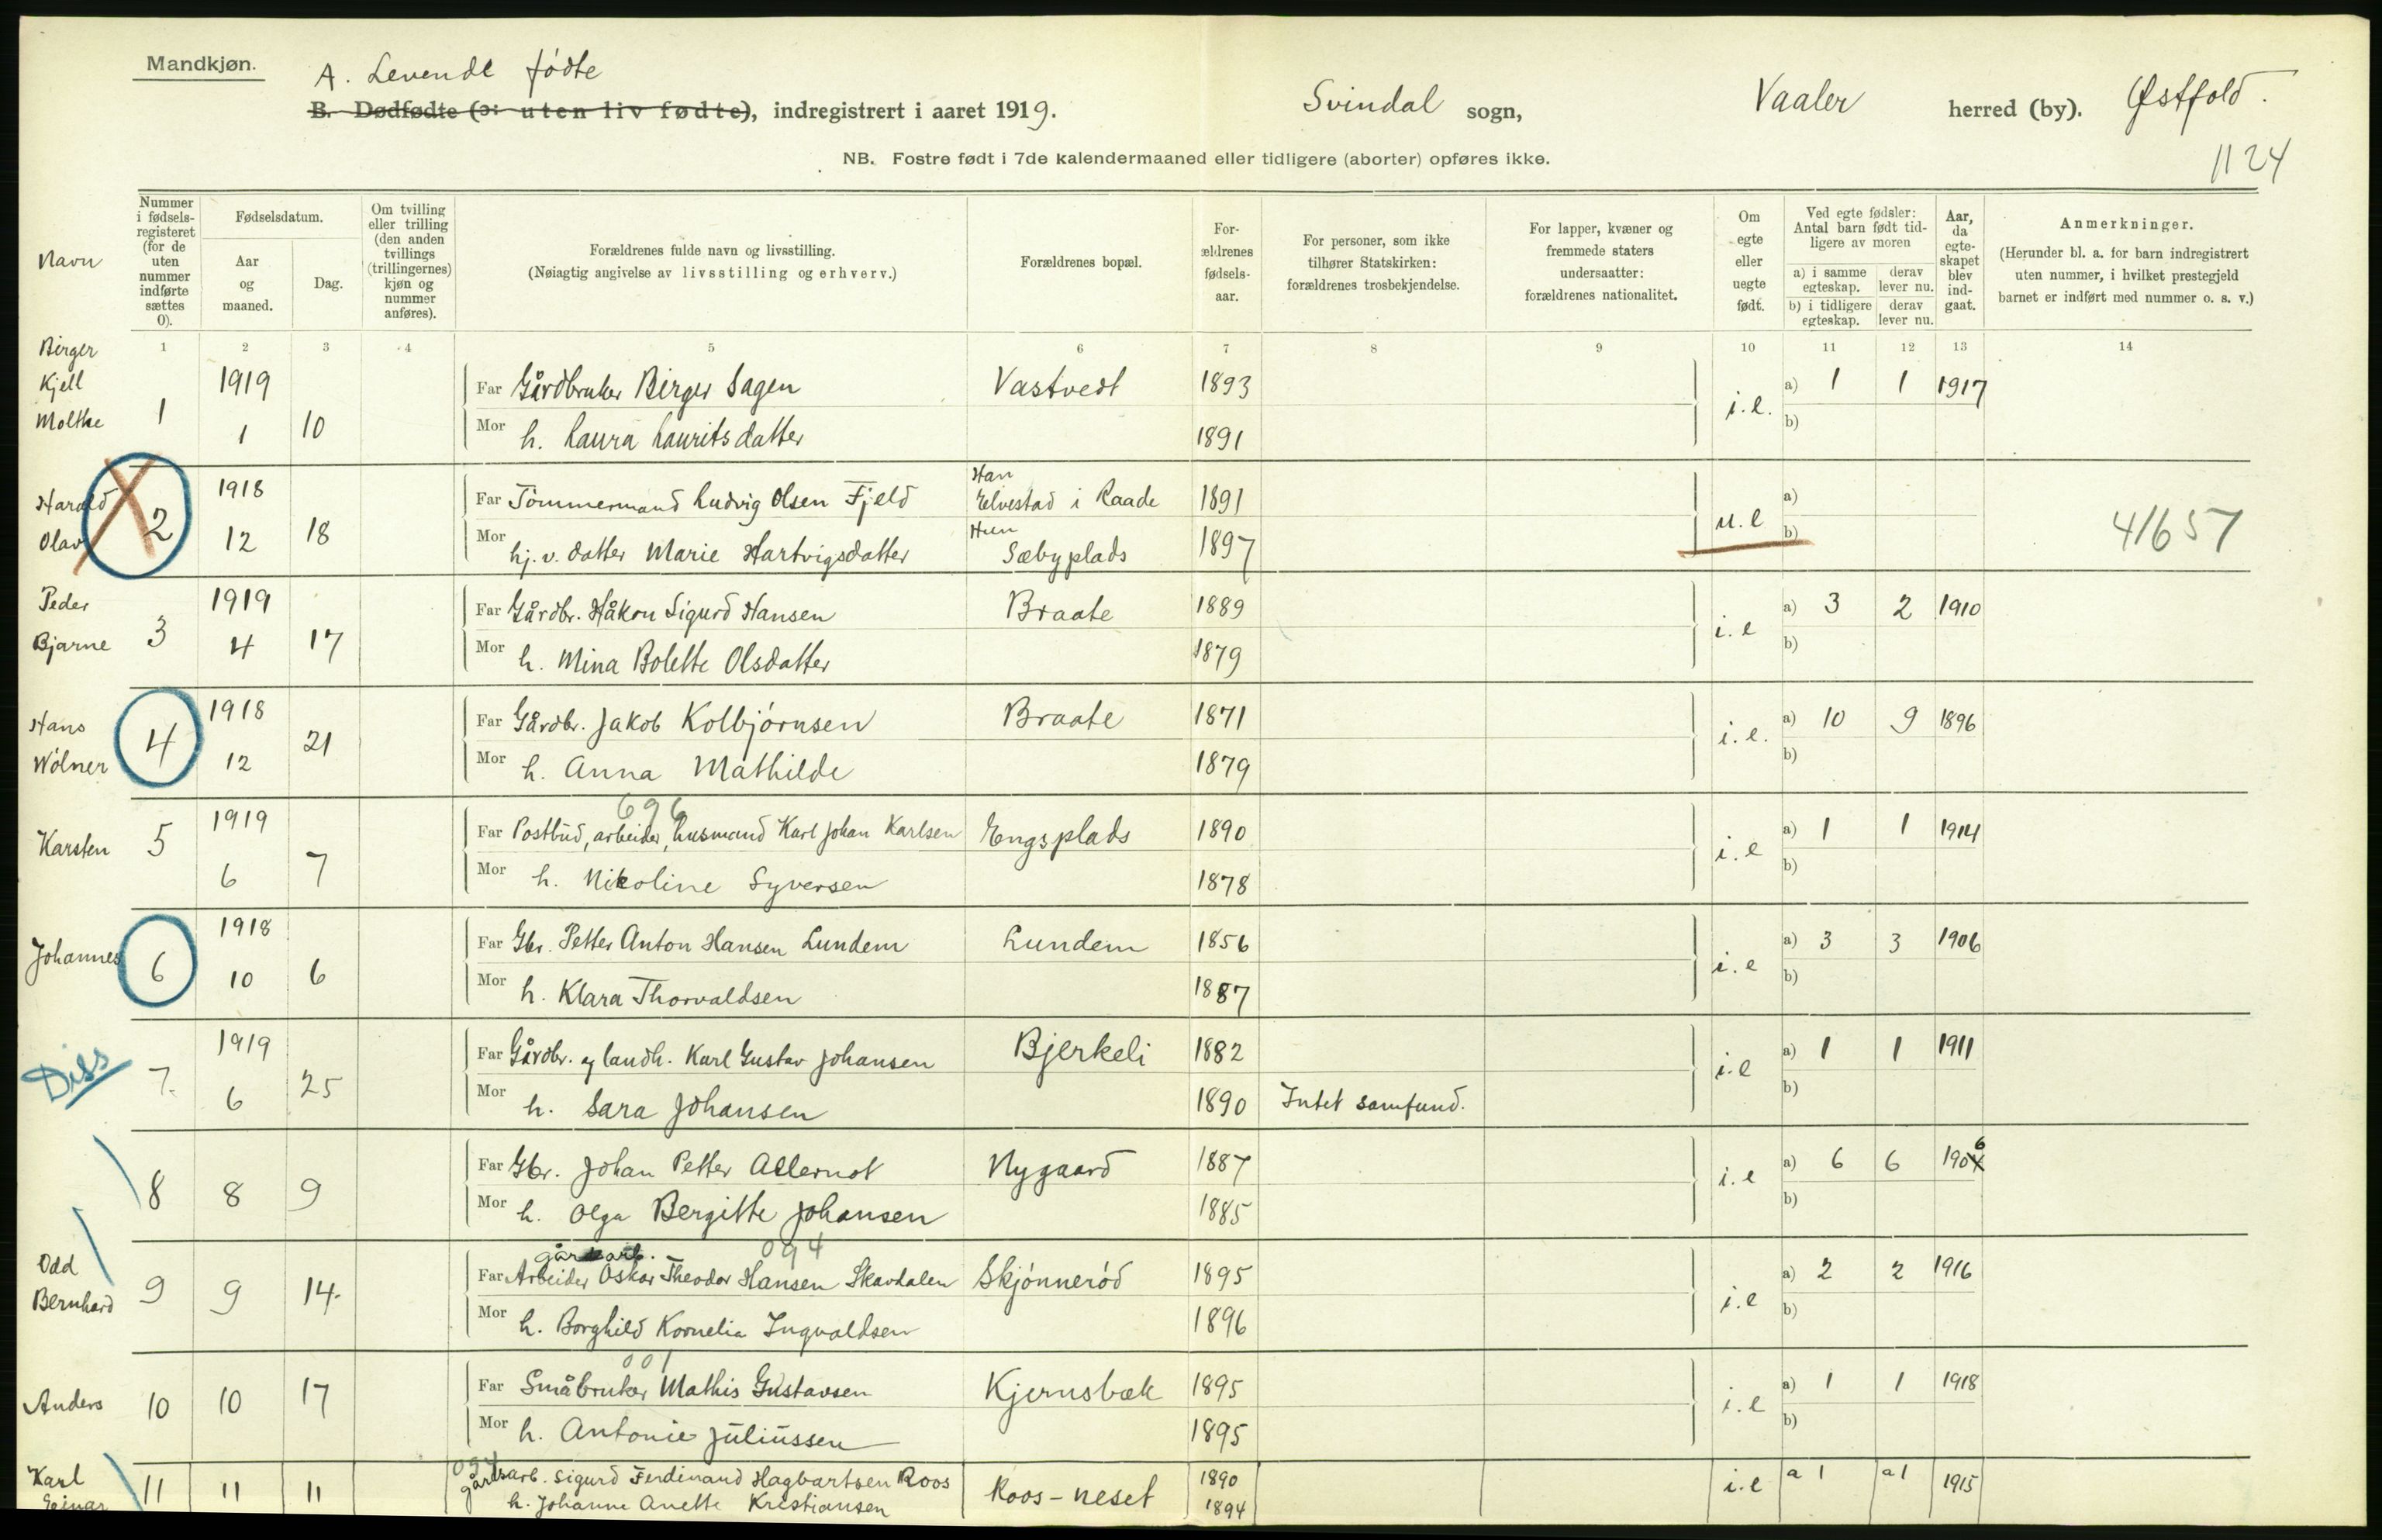 Mandkjøn.
A. Levende fødte
B. Dødfødte (ɔ: uten liv fødte), indregistrert i aaret 1919. Svindal sogn, Vaaler herred (by). Østfold.
NB. Fostre født i 7de kalendermaaned eller tidligere (aborter) opføres ikke.
1124
Navn
Nummer i fødsels-registeret (for de uten nummer indførte sættes 0).
Fødselsdatum.
Aar og maaned.
Dag.
Om tvilling eller trilling (den anden tvillings (trillingernes) kjøn og nummer anføres).
Forældrenes fulde navn og livsstilling.
(Nøiagtig angivelse av livsstilling og erhverv.)
Forældrenes bopæl.
For-ældrenes fødsels-aar.
For personer, som ikke tilhører Statskirken: forældrenes trosbekjendelse.
For lapper, kvæner og fremmede staters undersaatter: forældrenes nationalitet.
Om egte eller uegte født.
Ved egte fødsler: Antal barn født tid-ligere av moren
a) i samme egteskap. derav lever nu.
b) i tidligere egteskap. derav lever nu.
Aar, da egte-skapet blev ind-gaat.
Anmerkninger.
(Herunder bl. a. for barn indregistrert uten nummer, i hvilket prestegjeld barnet er indført med nummer o. s. v.)
1 2 3 4 5 6 7 8 9 10 11 12 13 14
Birger Kjell Moltke 1 1919 1 10
Far Gårdbruker Birger Sagen Vastvedt 1893 i.e. a) 1 1 1917
Mor h. Laura Lauritsdatter 1891 b)
Harald Olav 2 1918 12 18
Far Tømmermand Ludvig Olsen Fjeld Han Elvestad i Raade 1891 u.e a)
Mor hj. v. datter Marie Hartvigsdatter Hun Sæbyplads 1897 b) 41657
Peder Bjarne 3 1919 4 17
Far Gårdbr. Håkon Sigurd Hansen Braate 1889 i.e a) 3 2 1910
Mor h. Mina Bolette Olsdatter 1879 b)
Hans Wølner 4 1918 12 21
Far Gårdbr. Jakob Kolbjørnsen Braate 1871 i.e. a) 10 9 1896
Mor h. Anna Mathilde 1879 b)
696
Karsten 5 1919 6 7
Far Postbud, arbeider, husmand Karl Johan Karlsen Engsplads 1890 i.e a) 1 1 1914
Mor h. Nikoline Syversen 1878 b)
Johannes 6 1918 10 6
Far Gbr. Petter Anton Hansen Lundem Lundem 1856 i.e a) 3 3 1906
Mor h. Klara Thorvaldsen 1887 b)
Diss 7. 1919 6 25
Far Gårdbr. og landh. Karl Gustav Johansen Bjerkeli 1882 i.e a) 1 1 1911
Mor h. Sara Johansen 1890 Intet samfund. b)
8 8 9
Far Gbr. Johan Petter Allernot Nygaard 1887 i.e a) 6 6 1906
Mor h. Olga Bergitte Johansen 1885 b)
gårdsarb. 094
Odd Bernhard 9 9 14.
Far Arbeider Oskar Theodor Hansen Skavdalen Skjønnerød 1895 i.e a) 2 2 1916
Mor h. Borghild Kornelia Ingvaldsen 1896 b)
001
Anders 10 10 17
Far Småbruker Mathis Gustavsen Kjernsbæk 1895 i.e a) 1 1 1918
Mor h. Antonie Juliussen 1895 b)
094
Karl Einar 11 11 11
gårdsarb. Sigurd Ferdinand Hagbartsen Roos Roos-neset 1890 i.e a 1 a 1 1915
h. Johanne Anette Kristiansen 1894